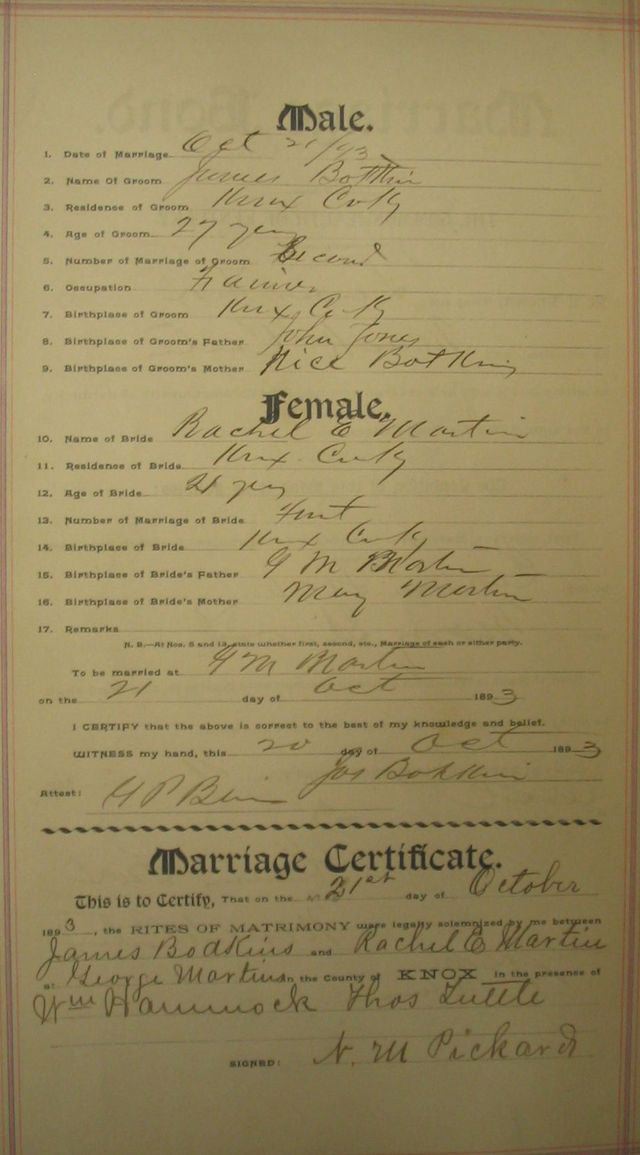 Male.
1. Date of Marriage Oct 21/93
2. Name Of Groom James Botkin
3. Residence of Groom Knox Co Ky
4. Age of Groom 27 years
5. Number of Marriage of Groom Second
6. Occupation Farmer
7. Birthplace of Groom Knox Co Ky
8. Birthplace of Groom's Father John Jones
9. Birthplace of Groom's Mother Botkins
Female.
10. Name of Bride Rachel E Martin
11. Residence of Bride Knox Co Ky
12. Age of Bride 21 yrs
13. Number of Marriage of Bride First
14. Birthplace of Bride Knox Co Ky
15. Birthplace of Bride's Father G M Martin
16. Birthplace of Bride's Mother Mary Martin
17. Remarks
N. B.—At Nos. 5 and 13, state whether first, second, etc., Marriage of each or either party.
To be married at G M Martin
on the 21 day of Oct 1893
I CERTIFY that the above is correct to the best of my knowledge and belief.
WITNESS my hand, this 20 day of Oct 1893
Jas Botkin
Attest: G P
Marriage Certificate.
This is to Certify, That on the 21st day of October
1893, the RITES OF MATRIMONY were legally solemnized by me between
James Bodkins and Rachel E Martin
at George Martins in the County of KNOX In the presence of
Wm Hammock Thos Tuttle
SIGNED: N. M Pickard